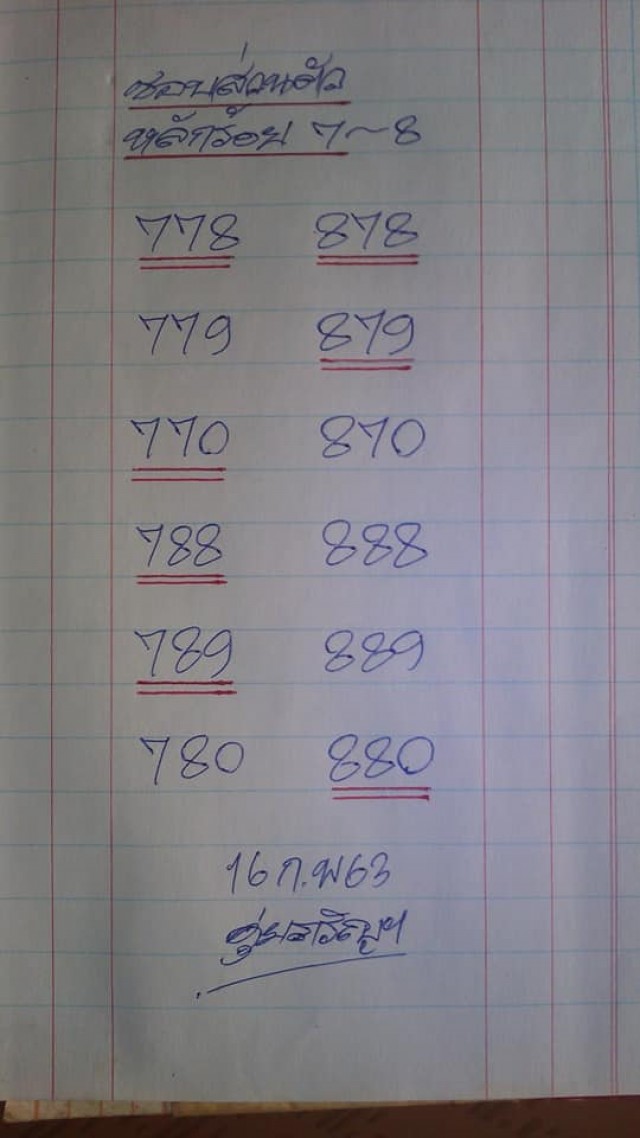 ชอบส่วนตัว
หลักร้อย 7~8
778 878
779 879
770 870
788 888
789 889
780 880
16 ก.พ 63